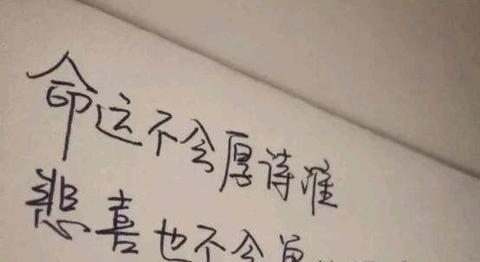 命运不会厚待谁
悲喜也不会单